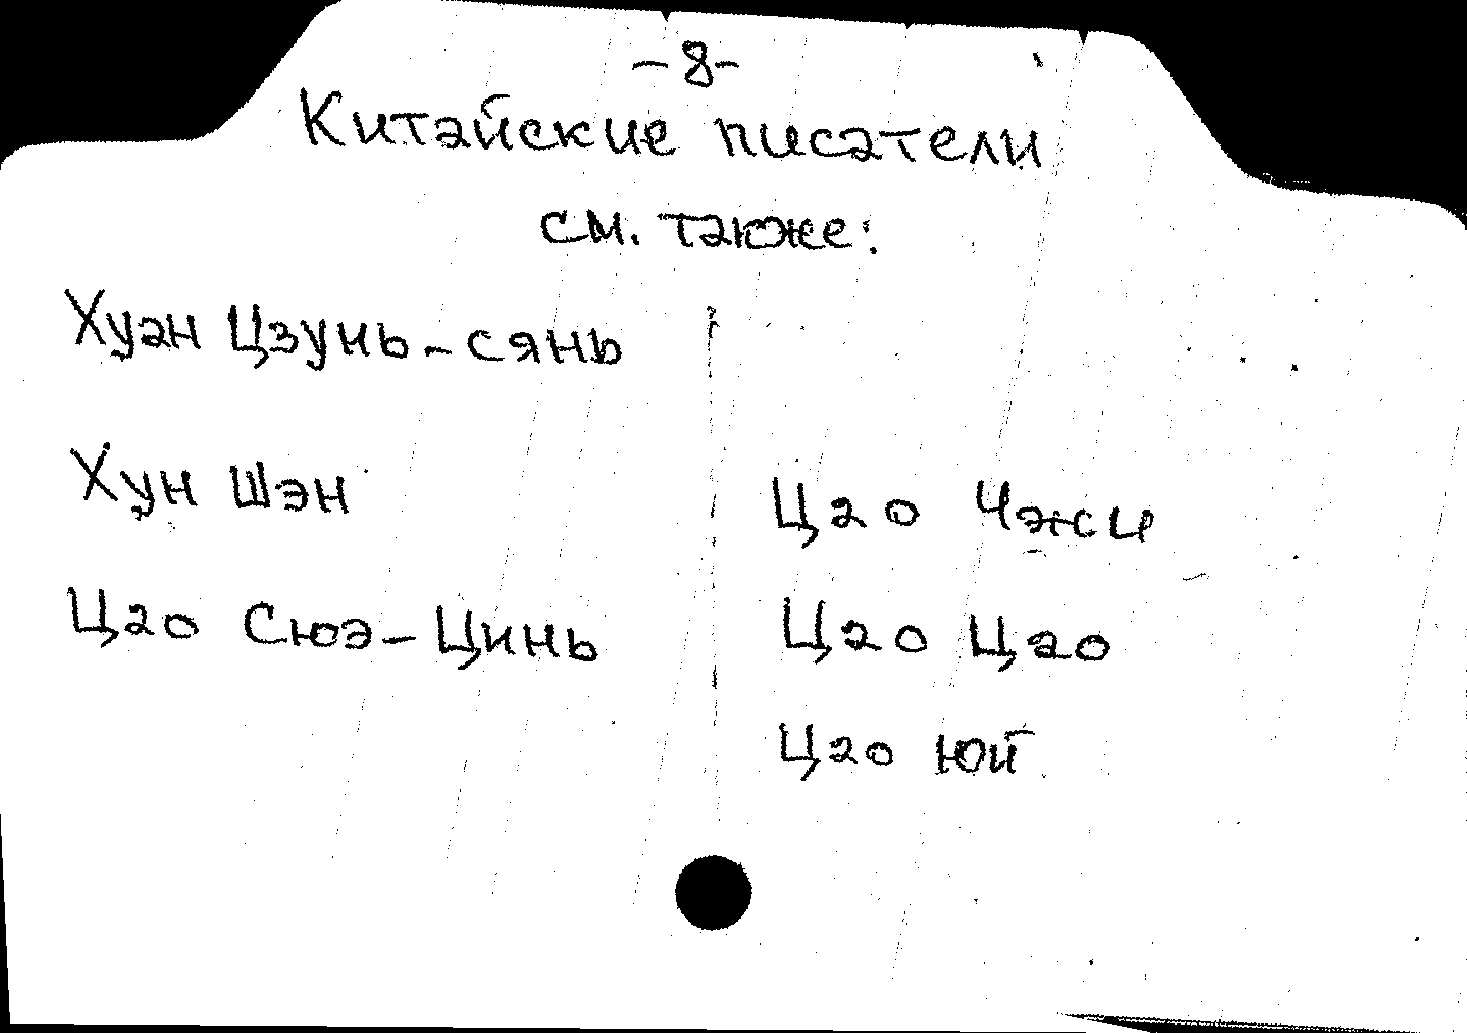 -8-
Китайские писатели
см. также:
Хуан Цзунь-сянь
Хун Шэн
Цао Сюэ-Цинь
Цао Чжи
Цао Цао
Цао Юй